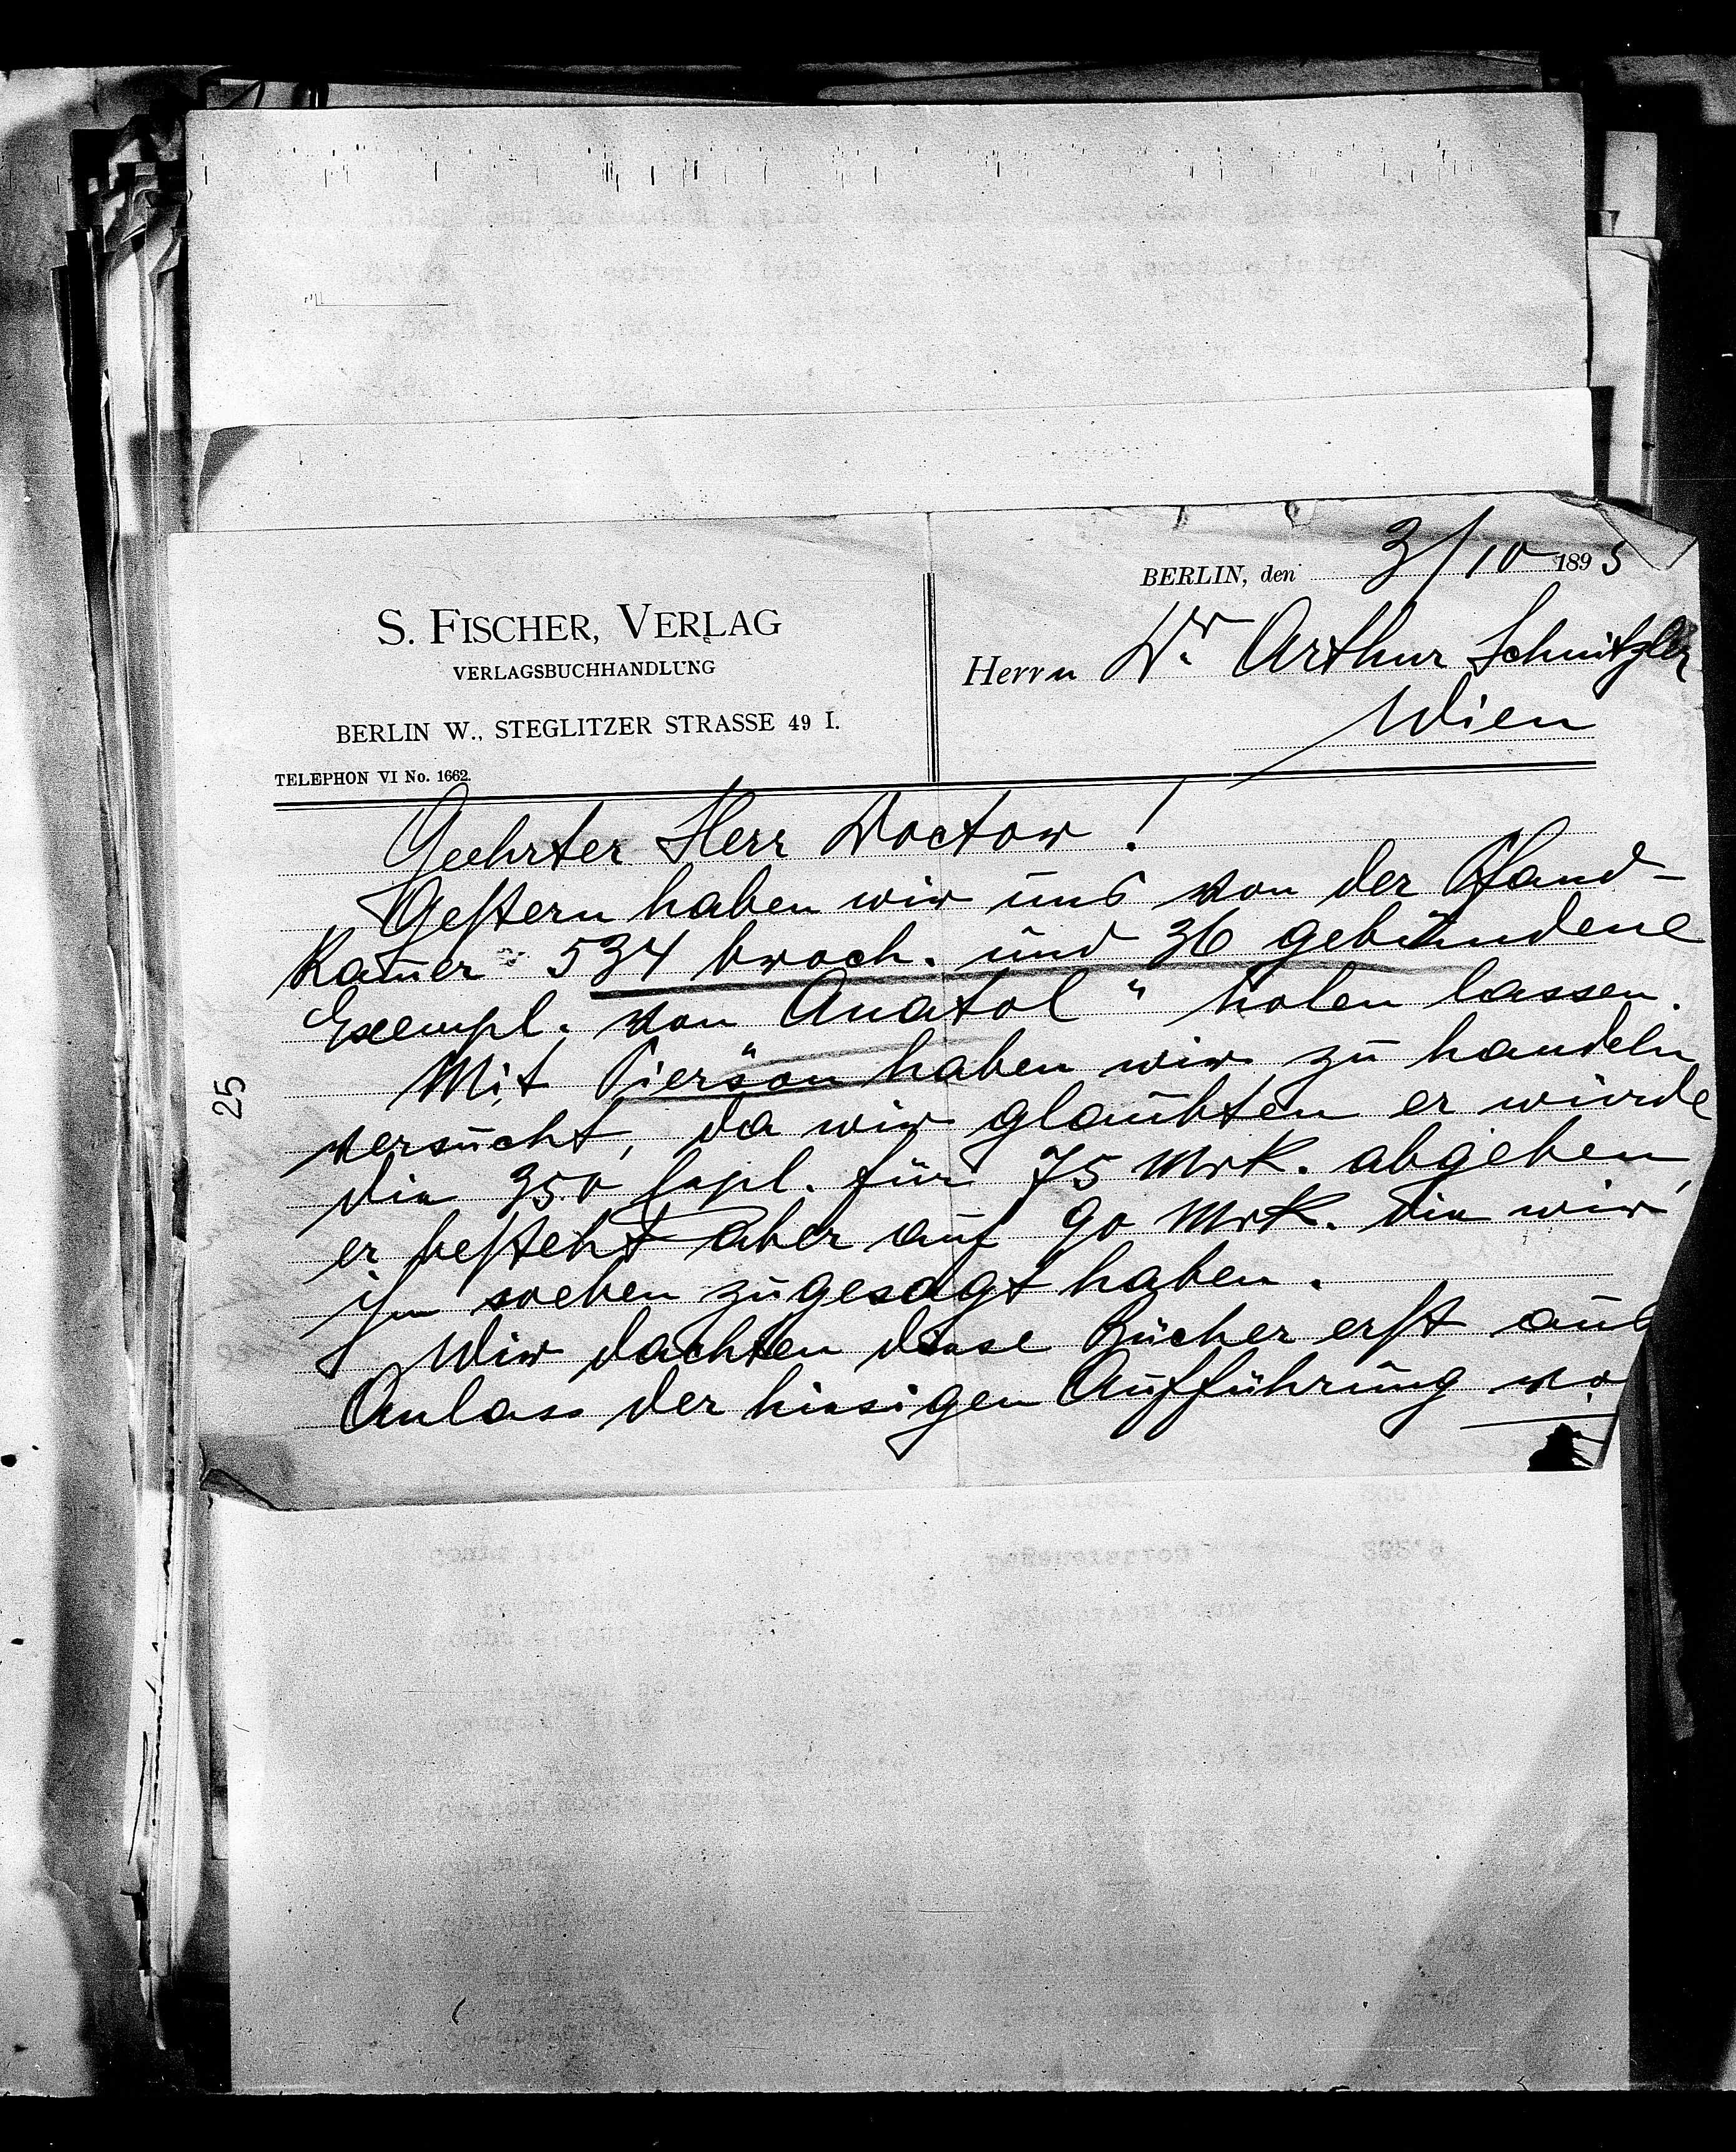 BERLIN, den 3/10 1895
S. FISCHER, VERLAG
VERLAGSBUCHHANDLUNG
BERLIN W., STEGLITZER STRASSE 49 I.
TELEPHON VI No. 1662.
Herrn Dr. Arthur Schnitzler
Wien
Geehrter Herr Doctor!
Gestern haben wir uns von der Pfand-
kam̄er 534 broch. und 36 gebundene
Exempl. von Anatol" holen lassen.
Mit Pierson haben wir zu handeln
versucht, da wir glaubten er würde
die 350 Expl. für 75 Mrk. abgeben,
er besteht aber auf 90 Mrk. die wir
ihm soeben zugesagt haben.
Wir dachten diese Bücher erst aus
Anlass der hiesigen Aufführung
25